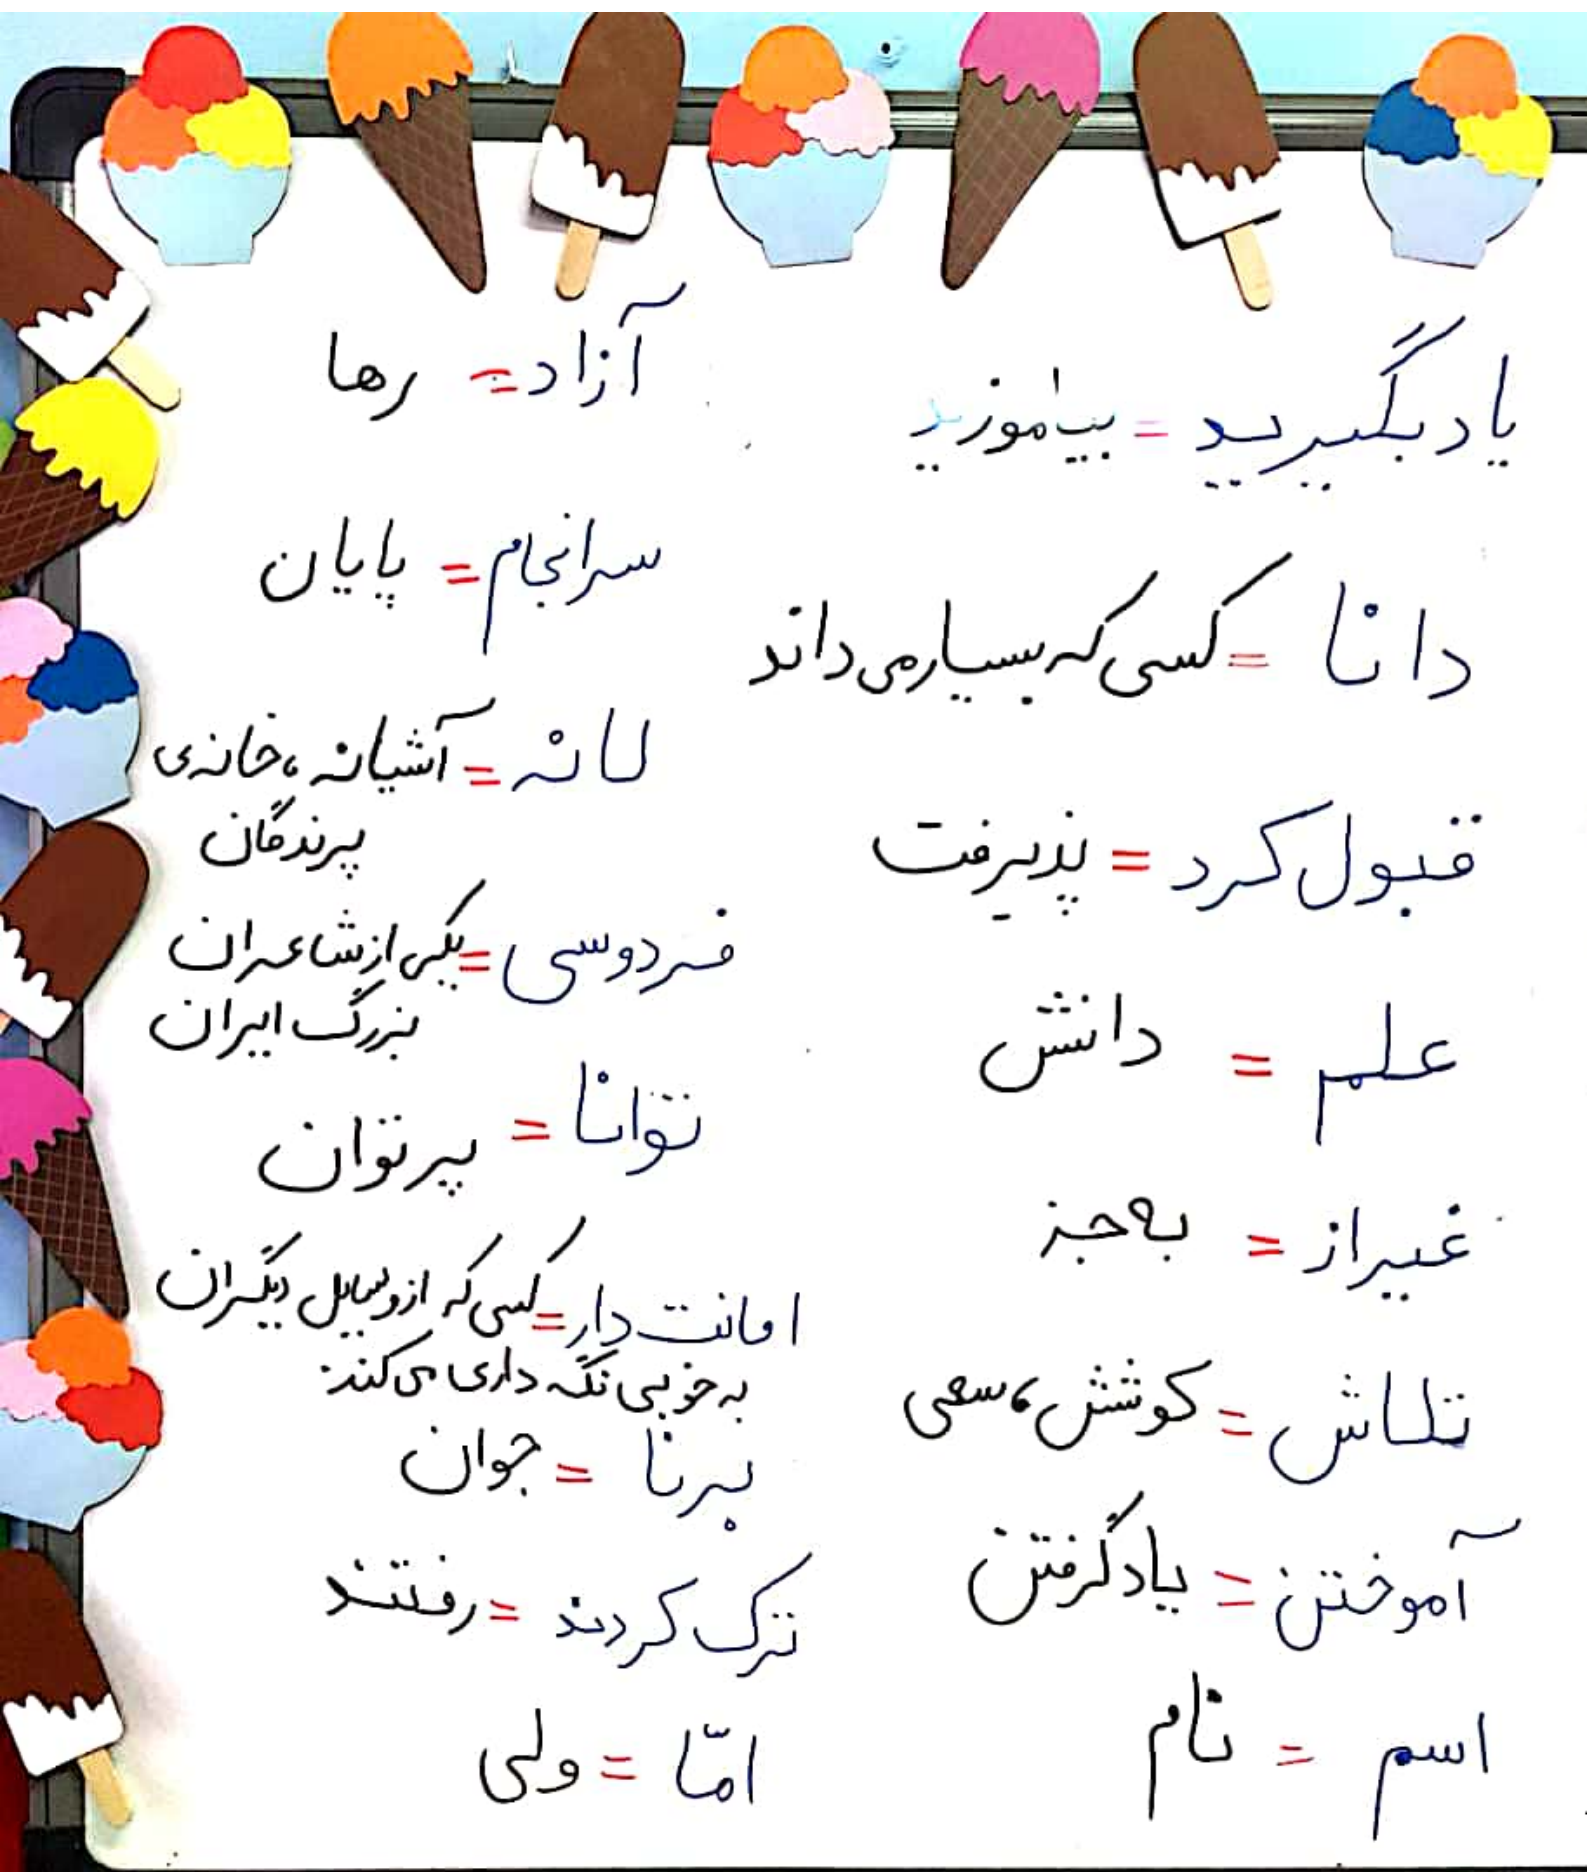 یاد بگیرید = بیاموزید
دانا = کسی که بسیار می داند
قبول کرد = پذیرفت
علم = دانش
غیر از = به جز
تلاش = کوشش، سعی
آموختن = یاد گرفتن
اسم = نام
آزاد = رها
سرانجام = پایان
لانه = آشیانه، خانه‌ی
پرندگان
فردوسی = یکی از شاعران
بزرگ ایران
توانا = پر توان
امانت دار = کسی که از وسایل دیگران
به خوبی نگه داری می کند.
برنا = جوان
ترک کردند = رفتند
امّا = ولی